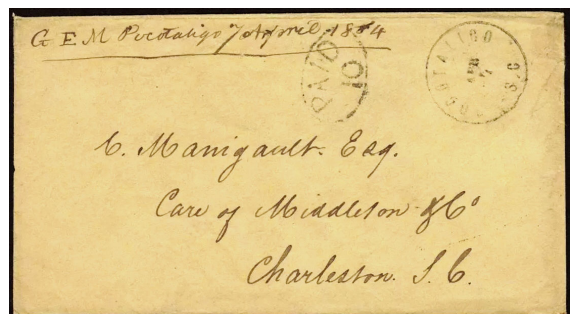 G E M Pocotaligo 7 April, 1864
PAID
10
POCOTALIGO S.C.
APR
7
C. Manigault. Esq.
Care of Middleton & Co
Charleston. S. C.